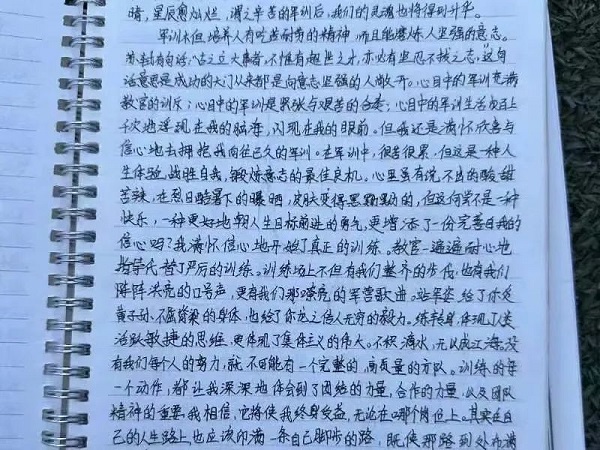 暗，星辰愈灿烂，渭之辛苦的军训后，我们的灵魂也将得到升华。
军训不但培养人有吃苦耐劳的精神，而且能磨炼人坚强的意志。
苏轼有句话：“古之立大事者，不惟有超世之才，亦必有坚忍不拔之志”，这句
话意思是成功的大门从来都是向意志坚强的人敞开。心目中的军训充满
教官的训斥；心目中的军训是紧张与艰苦的合奏；心目中的军训生活成百上
千次地浮现在我的脑海，闪现在我的眼前。但我还是满怀欣喜与
信心地去拥抱我向往已久的军训。在军训中，很苦很累，但这是一种人
生体验，战胜自我，锻炼意志的最佳良机。心里虽有说不出的酸甜
苦辣，在烈日酷暑下的曝晒，皮肤变得黑黝黝的，但这何尝不是一种
快乐，一种更好地朝人生目标前进的勇气，更增添了一份完善自我的
信心吗？我满怀信心地开始了真正的训练。教官一遍遍耐心地
指导代替了严厉的训练。训练场上不但有我们整齐的步伐，也有我们
阵阵洪亮的口号声，更有我们那嘹亮的军营歌曲。站军姿，给了你炎
黄子孙不屈脊梁的身体，也给了你龙之传人无穷的毅力。练转身，体现了人类
活跃敏捷的思维，更体现了集体主义的伟大。不积滴水，无以成江海。没
有我们每个人的努力，就不可能有一个完整的，高质量的方队。训练的每
一个动作，都让我深深地体会到了团结的力量，合作的力量，以及团队
精神的重要。我相信，它将使我终身受益，无论在哪个岗位上。其实在自
己的人生路上，也应该印满一条自己脚步的路，既使那路到处布满